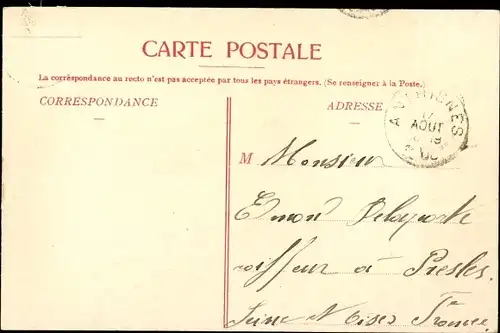 CARTE POSTALE
La correspondance au recto n'est pas acceptée par tous les pays étrangers. (Se renseigner à la Poste.)
CORRESPONDANCE
ADRESSE
AOUT
M Monsieur
Emond Delaporte
coiffeur à Presles
Seine &